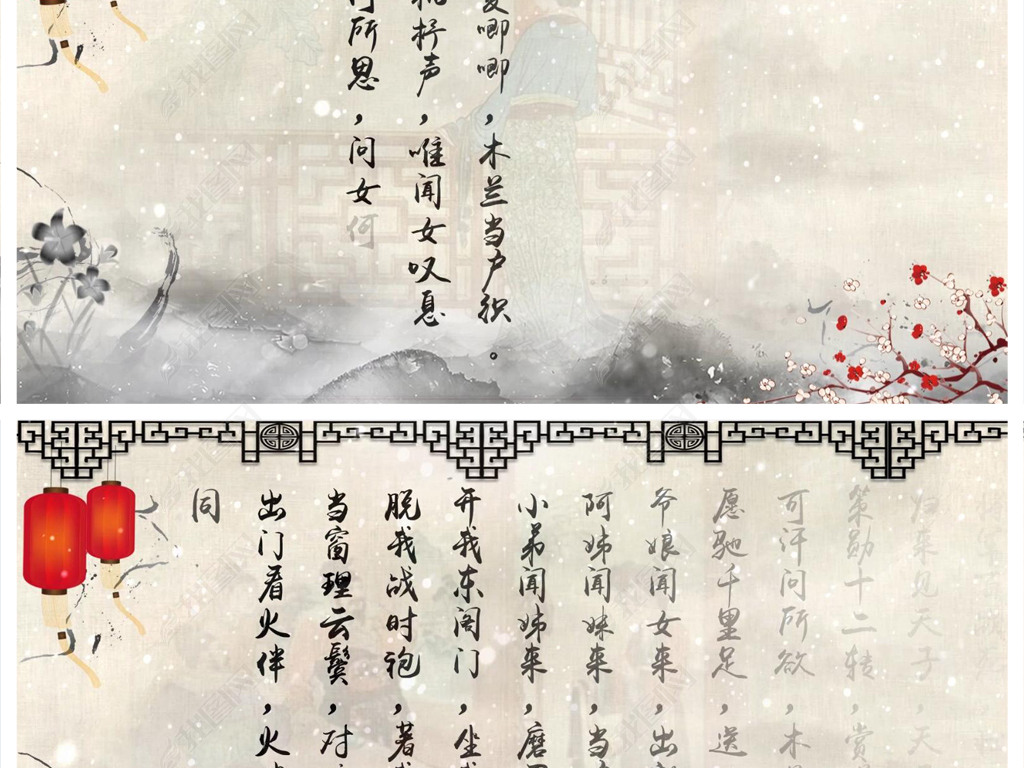 唧唧,木兰当户织。
杼声,唯闻女叹息
所思,问女何
归来见天子,天
策勋十二转,赏
可汗问所欲,木
愿驰千里足,送
爷娘闻女来,出
阿姊闻妹来,当
小弟闻姊来,磨
开我东阁门,坐
脱我战时袍,著
当窗理云鬓,对
出门看火伴,火
同